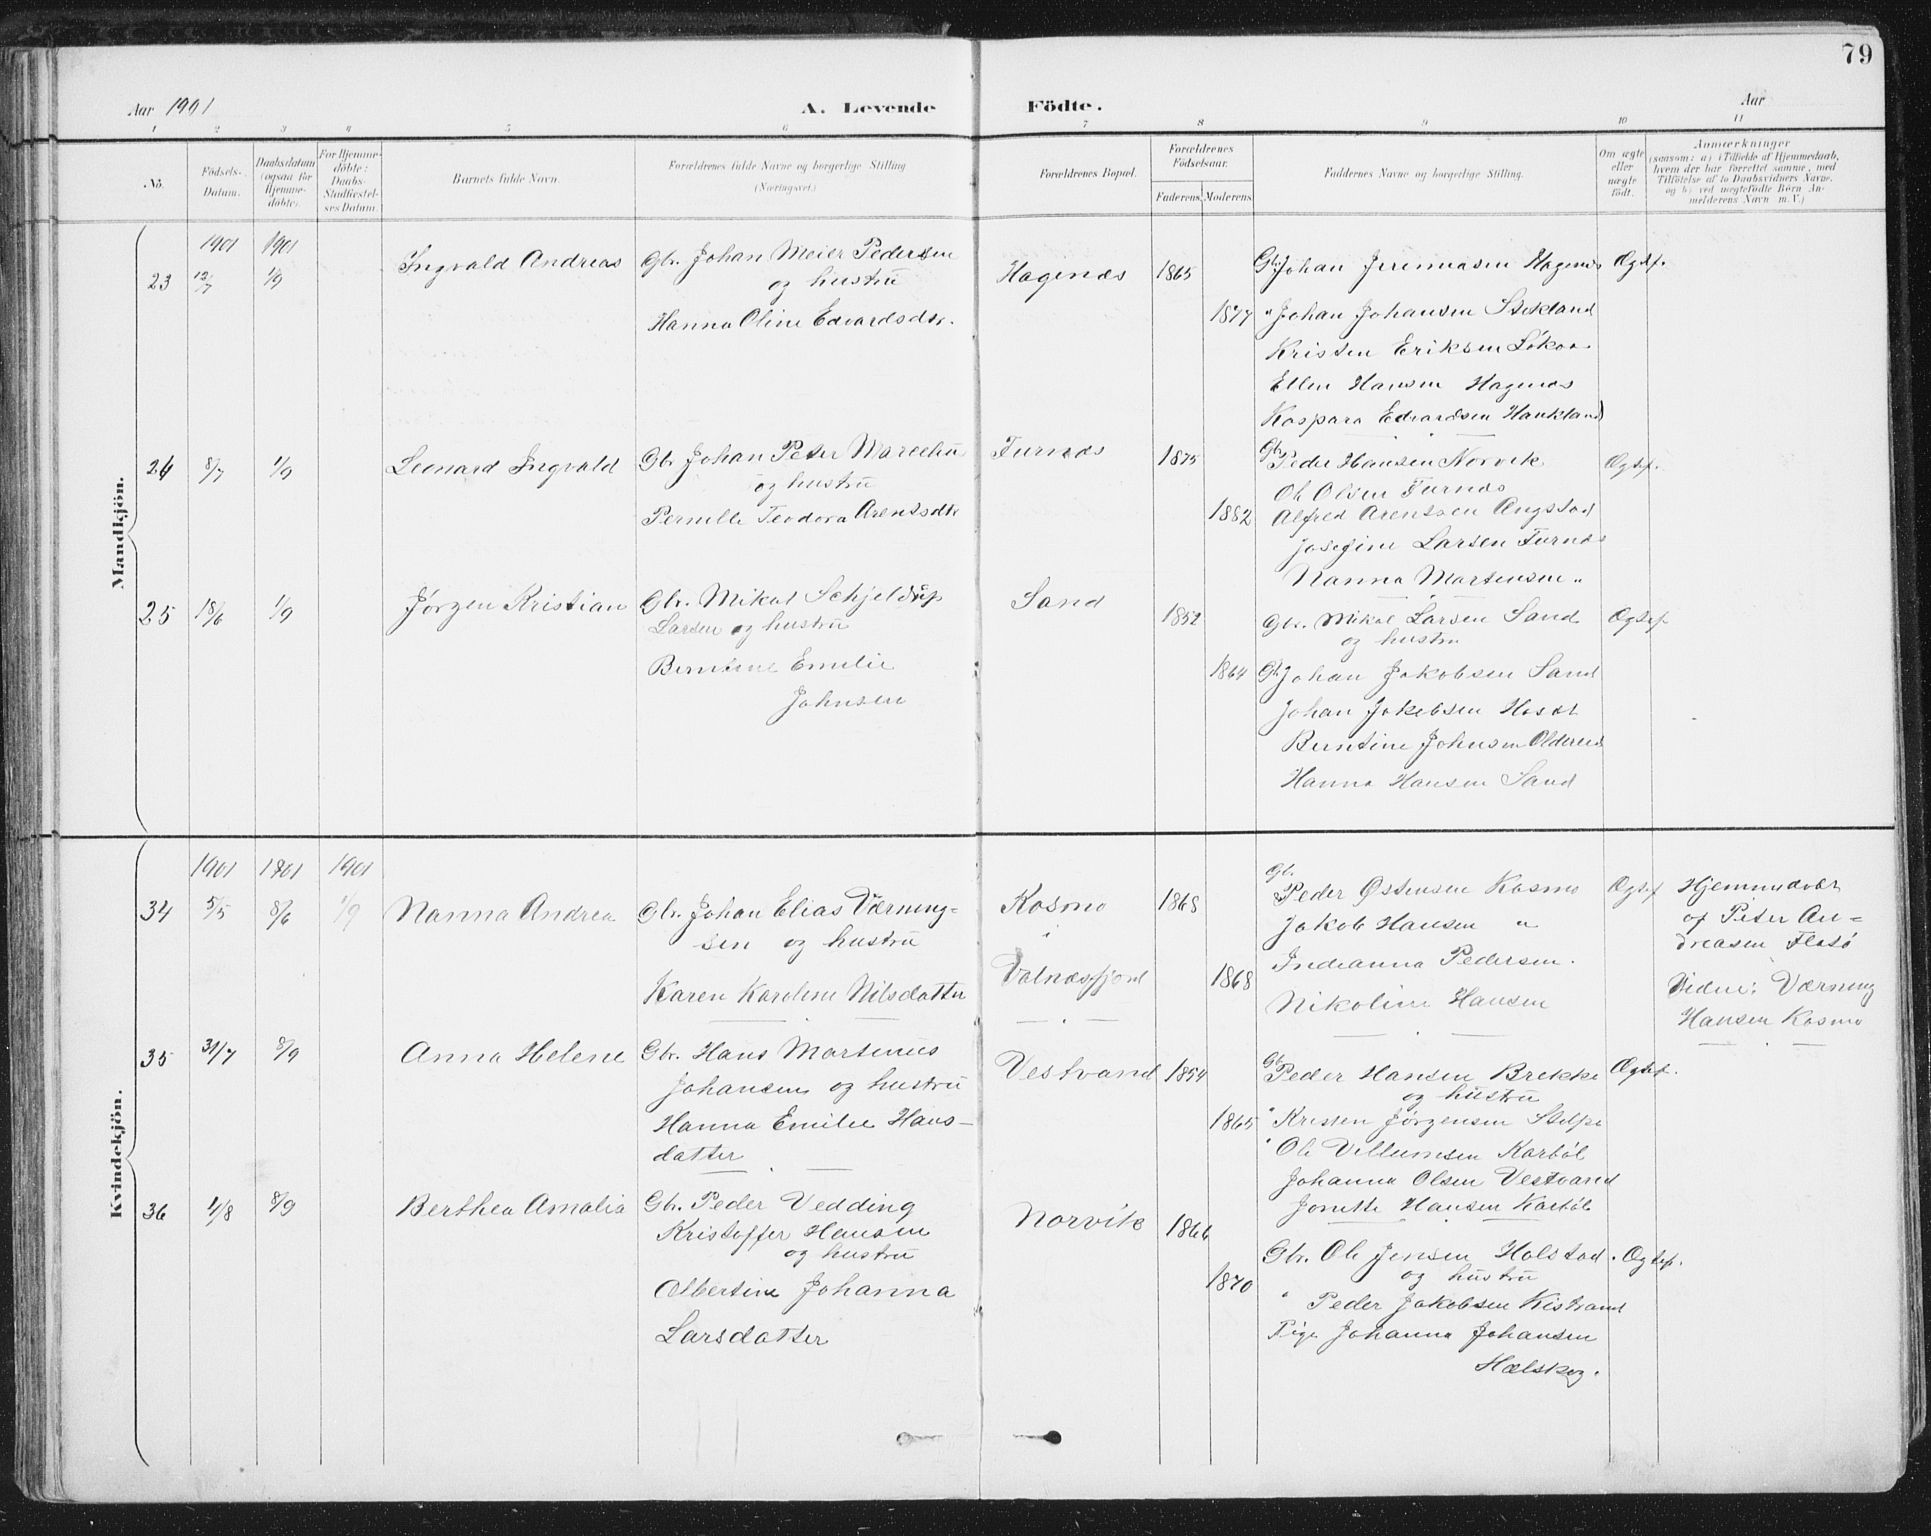 79
Aar 1901
A. Levende Födte.
Aar
1 2 3 4 5 6 7 8 9 10 11
No.
Fødsels-
Datum.
Daabsdatum
(ogsaa for
Hjemme-
döbte).
For Hjemme-
döbte:
Daabs-
Stadfæstel-
ses Datum.
Barnets fulde Navn.
Forældrenes fulde Navne og borgerlige Stilling
(Næringsvei.)
Forældrenes Bopæl.
Forældrenes
Födselsaar.
Faderens. Moderens.
Faddernes Navne og borgerlige Stilling.
Om ægte
eller
uægte
födt.
Anmærkninger
(saasom: a) i Tilfælde af Hjemmedaab,
hvem der har forrettet samme, med
Tilföielse af to Daabsvidners Navne,
og b) ved uægtefödte Börn An-
melderens Navn m. V.)
Mandkjön.
1901 1901
23 12/7 1/9 Ingvald Andreas
Gbr. Johan Meier Pedersen
og hustru
Hanna Oline Edvardsdtr.
Hagenæs 1865
1877
Gbr. Johan Jeremiasen Hagenæs Ægtef.
" Johan Johansen Stekland
Kristen Eriksen Løkaa
Ellen Hansen Hagenæs
Kaspara Edvardsen Haukland
24 8/7 1/9 Leonard Ingvald
Gbr Johan Peter
og hustru
Pernille Teodora Arentsdtr
Furnæs 1875
1882
Gbr Peder Hansen Norvik Ægtef.
Ole Olsen Furnæs
Alfred Arentsen Ængstad
Josefine Larsen Furnæs
Nanna Martensen "
25 18/6 1/9 Jørgen Kristian
Gbr. Mikal Schjeldrup
Larsen og hustru
Berntine Emelie
Johnsen
Sand 1852
1864
Gbr. Mikal Larsen Sand Ægtef
og hustru
Gbr Johan Jakobsen Sand
Johan Jakobsen
Berntine Johnsen Oldereid
Hanna Hansen Sand
Kvindekjön.
1901 1901 1901
34 5/5 8/6 1/9 Nanna Andrea
Gbr. Johan Elias Værning-
sen og hustru
Karen Karoline Nilsdatter
Kosmo 1868
"
Valnæsfjord 1868
Gbr.
Peder Østensen Kosmo Ægtef
Jakob Hansen "
Indianna Pedersen.
Nikoline Hansen
Hjemmedøbt
af Peter An-
dreasen Flatø
Vidne: Værning
Hansen Kosmo
35 31/7 8/9 Anna Helene
Gbr. Hans Martinus
Johansen og hustru
Hanna Emilie Hans-
datter
Vestvand 1854
1865
Gbr Peder Hansen Brekke Ægtef.
og hustru
" Kristen Jørgensen
" Ole Villumsen Karbøl
Johanna Olsen Vestvand
Jonette Hansen Karbøl
36 4/8 8/9 Berthea Amalia
Gbr. Peder Vedding
Kristoffer Hansen
og hustru
Albertine Johanna
Larsdatter
Norvik 1866
1870
Gbr. Ole Jensen Holstad. Ægtef.
og hustru
" Peder Jakobsen Kistrand
Pige Johanna Johansen
Hælskog.